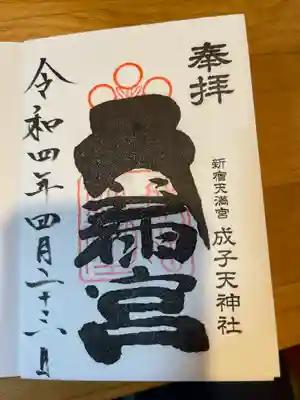 奉拝
新宿天満宮 成子天神社
天満宮
令和四年四月二十三日